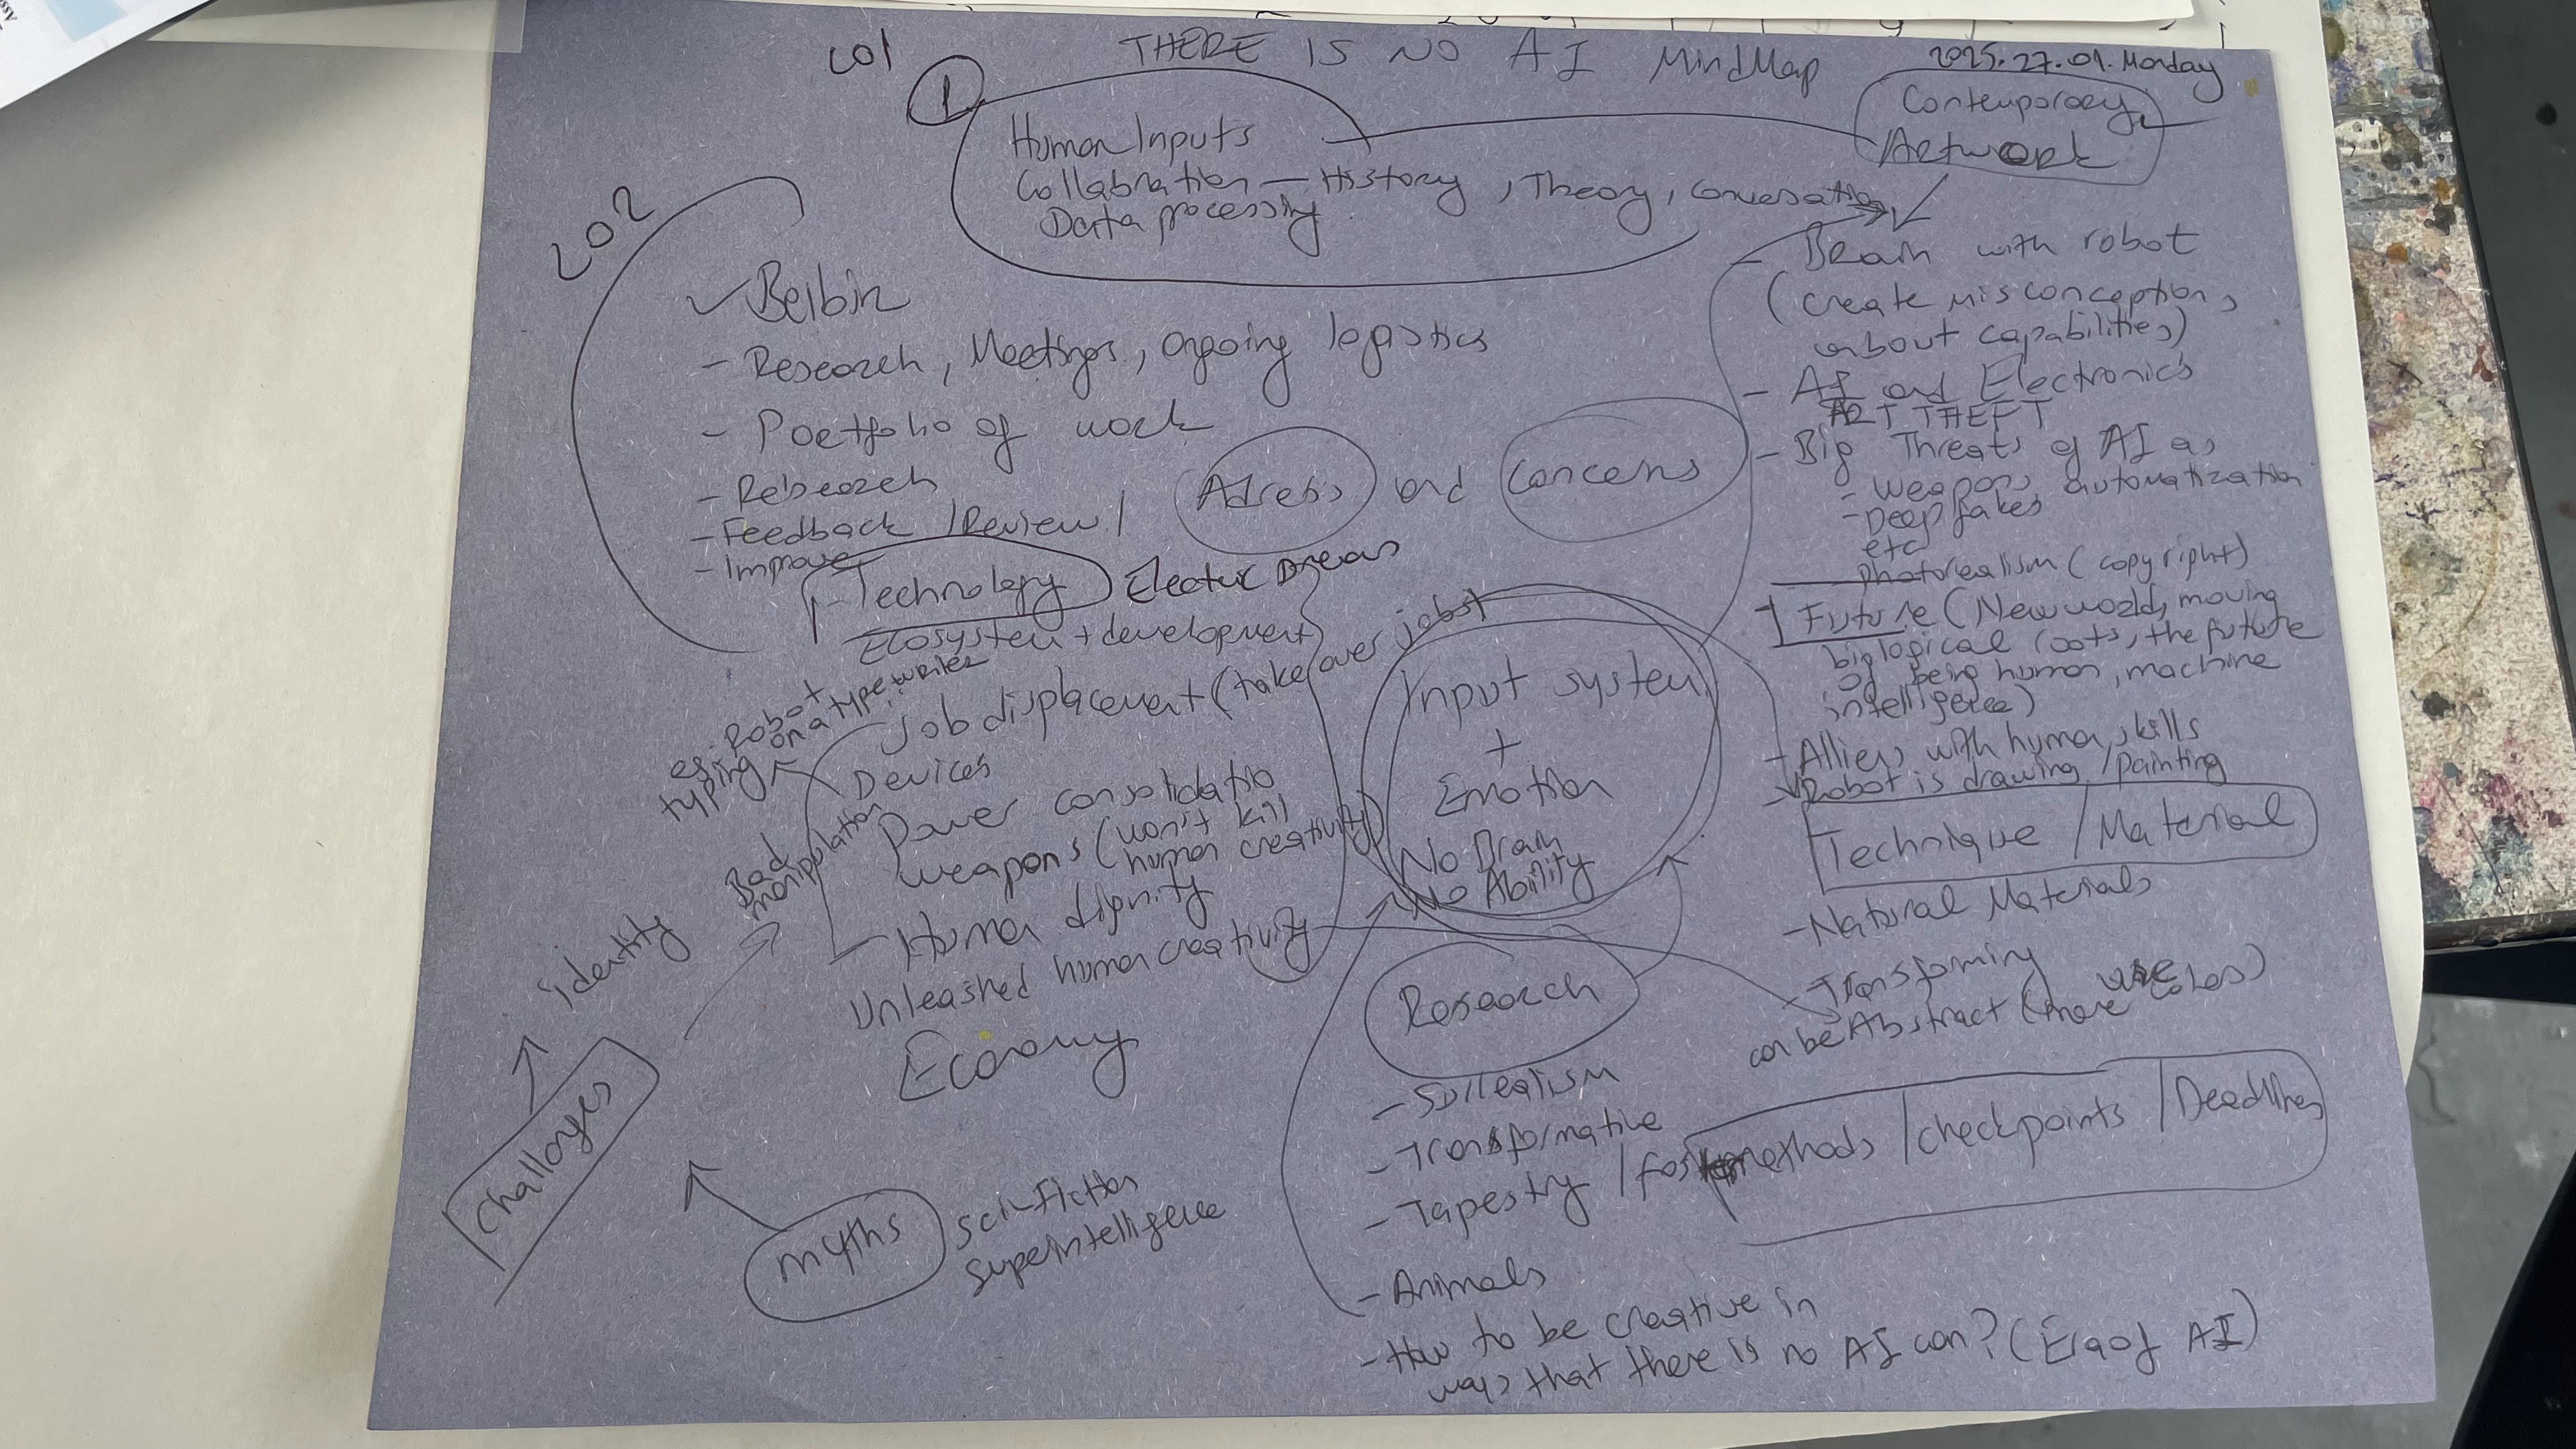 LO1
THERE IS NO AI MindMap
2025.27.01. Monday
1
Human Inputs
Collabration — History, Theory, conversation
Data processing
Contemporary
Artwork
LO2
Belbin
- Research, Meetings, ongoing logistics
- Portfolio of work
- Research
- Feedback / Review /
- Improve
Adress and Concerns
- Technology
Electric Dreams
Ecosystem + development
Job displacement (take over jobs)
eg. Robot
typing on a typewriter
Devices
Power consolidatio
weapons (won't kill
human creativity)
Bad
manipulation
Human dignity
Unleashed human creativity
Economy
identity
Challenges
myths
sci-fiction
superintelligence
Input system
+
Emotion
No Brain
No Ability
Research
- Surrealism
- Transformative
- Tapestry /
methods / checkpoints / Deadlines
- Animals
- How to be creative in
ways that there is no AI can? (Era of AI)
- Brain with robot
(create misconceptions
about capabilities)
- AI and Electronics
ART THEFT
- Big Threats of AI as
- weapons automatization
- Deep fakes
etc
- photorealism (copyright)
Future (New world, moving
biological roots, the future
of being human, machine
intelligence)
- Alliens with human skills
- Robot is drawing / painting
Technique / Material
- Natural Materials
- Transforming
can be Abstract (more use colors)